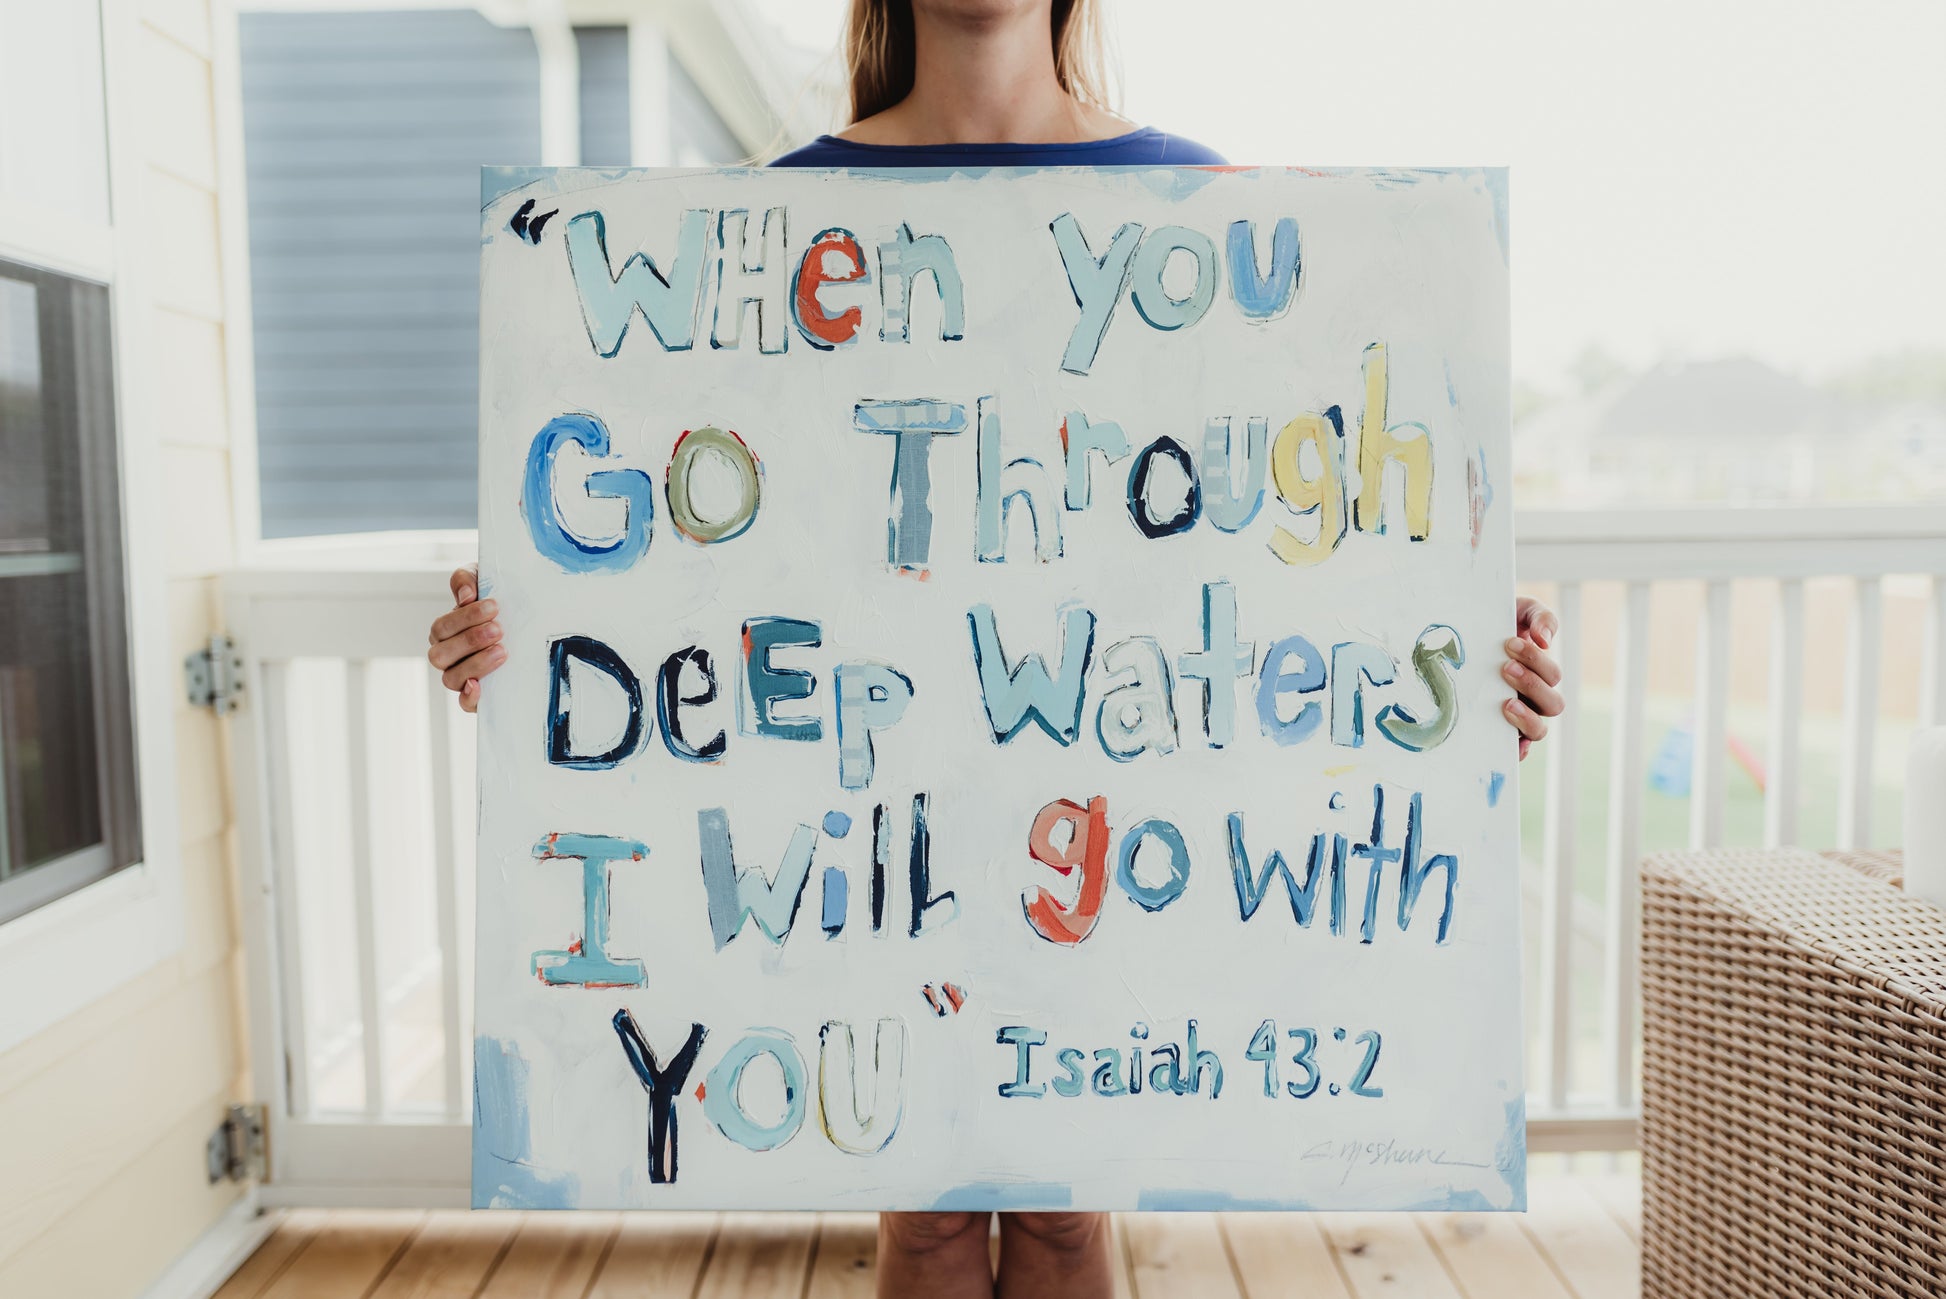 "WHen you
Go Through
DeEp waters
I will go with
YOU" Isaiah 43:2
C. McShane